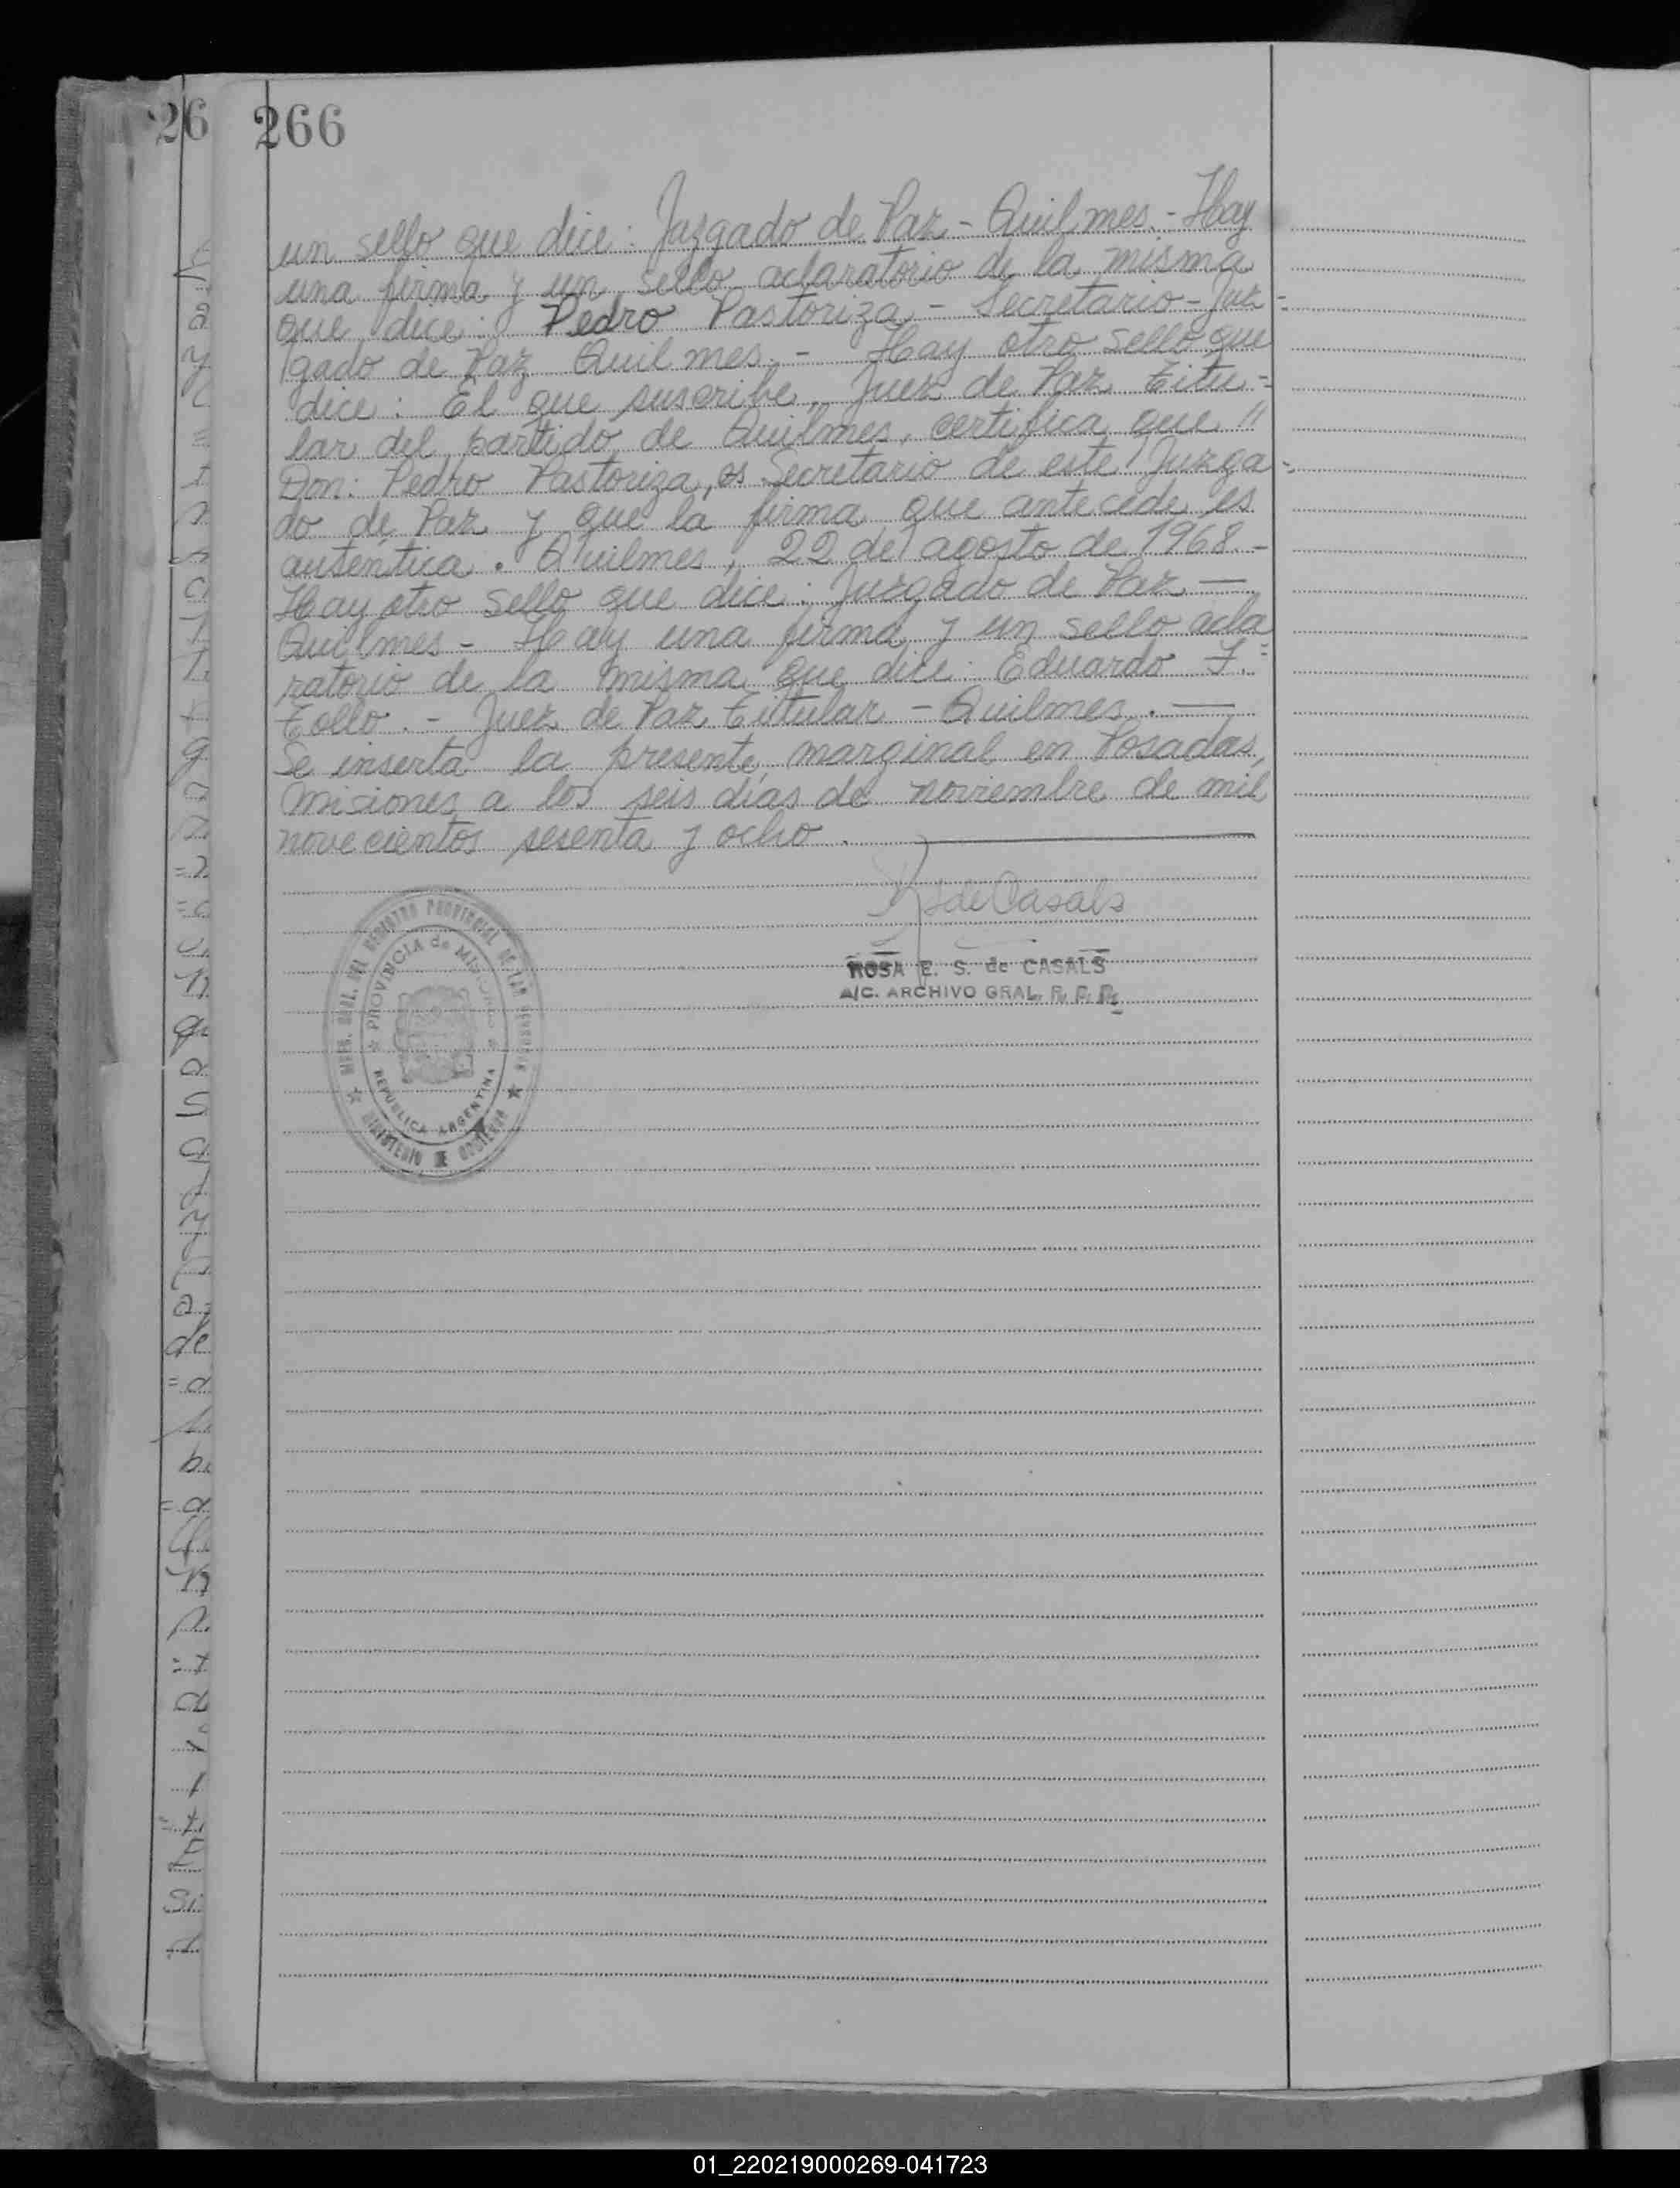 26
266
un sello que dice: Juzgado de Paz - Quilmes. - Hay
una firma y un sello aclaratorio de la misma
que dice: Pedro Pastoriza - Secretario - Juz=
gado de Paz Quilmes. - Hay otro sello que
dice: El que suscribe, Juez de Paz Titu=
lar del partido de Quilmes, certifica que "
Don: Pedro Pastoriza, es Secretario de este Juzga=
do de Paz y que la firma que antecede es
auténtica. Quilmes, 22 de agosto de 1968. -
Hay otro sello que dice: Juzgado de Paz —
Quilmes - Hay una firma y un sello acla=
ratorio de la misma que dice: Eduardo F.
Tollo. - Juez de Paz Titular - Quilmes. —
Se inserta la presente marginal en Posadas,
Misiones a los seis días de noviembre de mil
novecientos sesenta y ocho. —
de Casals
ROSA E. S. de CASALS
A/C. ARCHIVO GRAL. R. P. P.
REGISTRO PROVINCIAL DE LAS PERSONAS
PROVINCIA de MISIONES
REPUBLICA ARGENTINA
MINISTERIO DE GOBIERNO
01_220219000269-041723